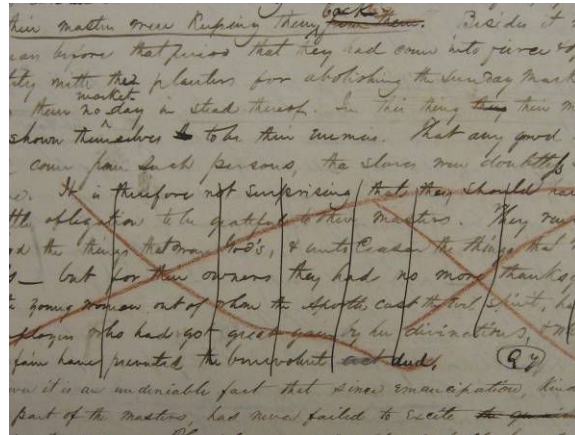 their masters were keeping them back from them. Besides it
before that period that they had come into fierce &
with the planters for abolishing the Sunday mark
market
them no day in stead thereof. In this thing they their
shown themselves to be their enemies. That any good
come from such persons, the slaves were doubtful
It is therefore not surprising that they should
obligation to be grateful to their masters. They
the things that were God's, & unto Ceasar the things that
but for their owners they had no more thanks
young woman out of whom the apostle cast the evil spirit,
who had got great gain by her divinations, &
fain have prevented the benevolent act deed, Qy
it is an undeniable fact that since emancipation, kind
part of the masters, has never failed to excite the